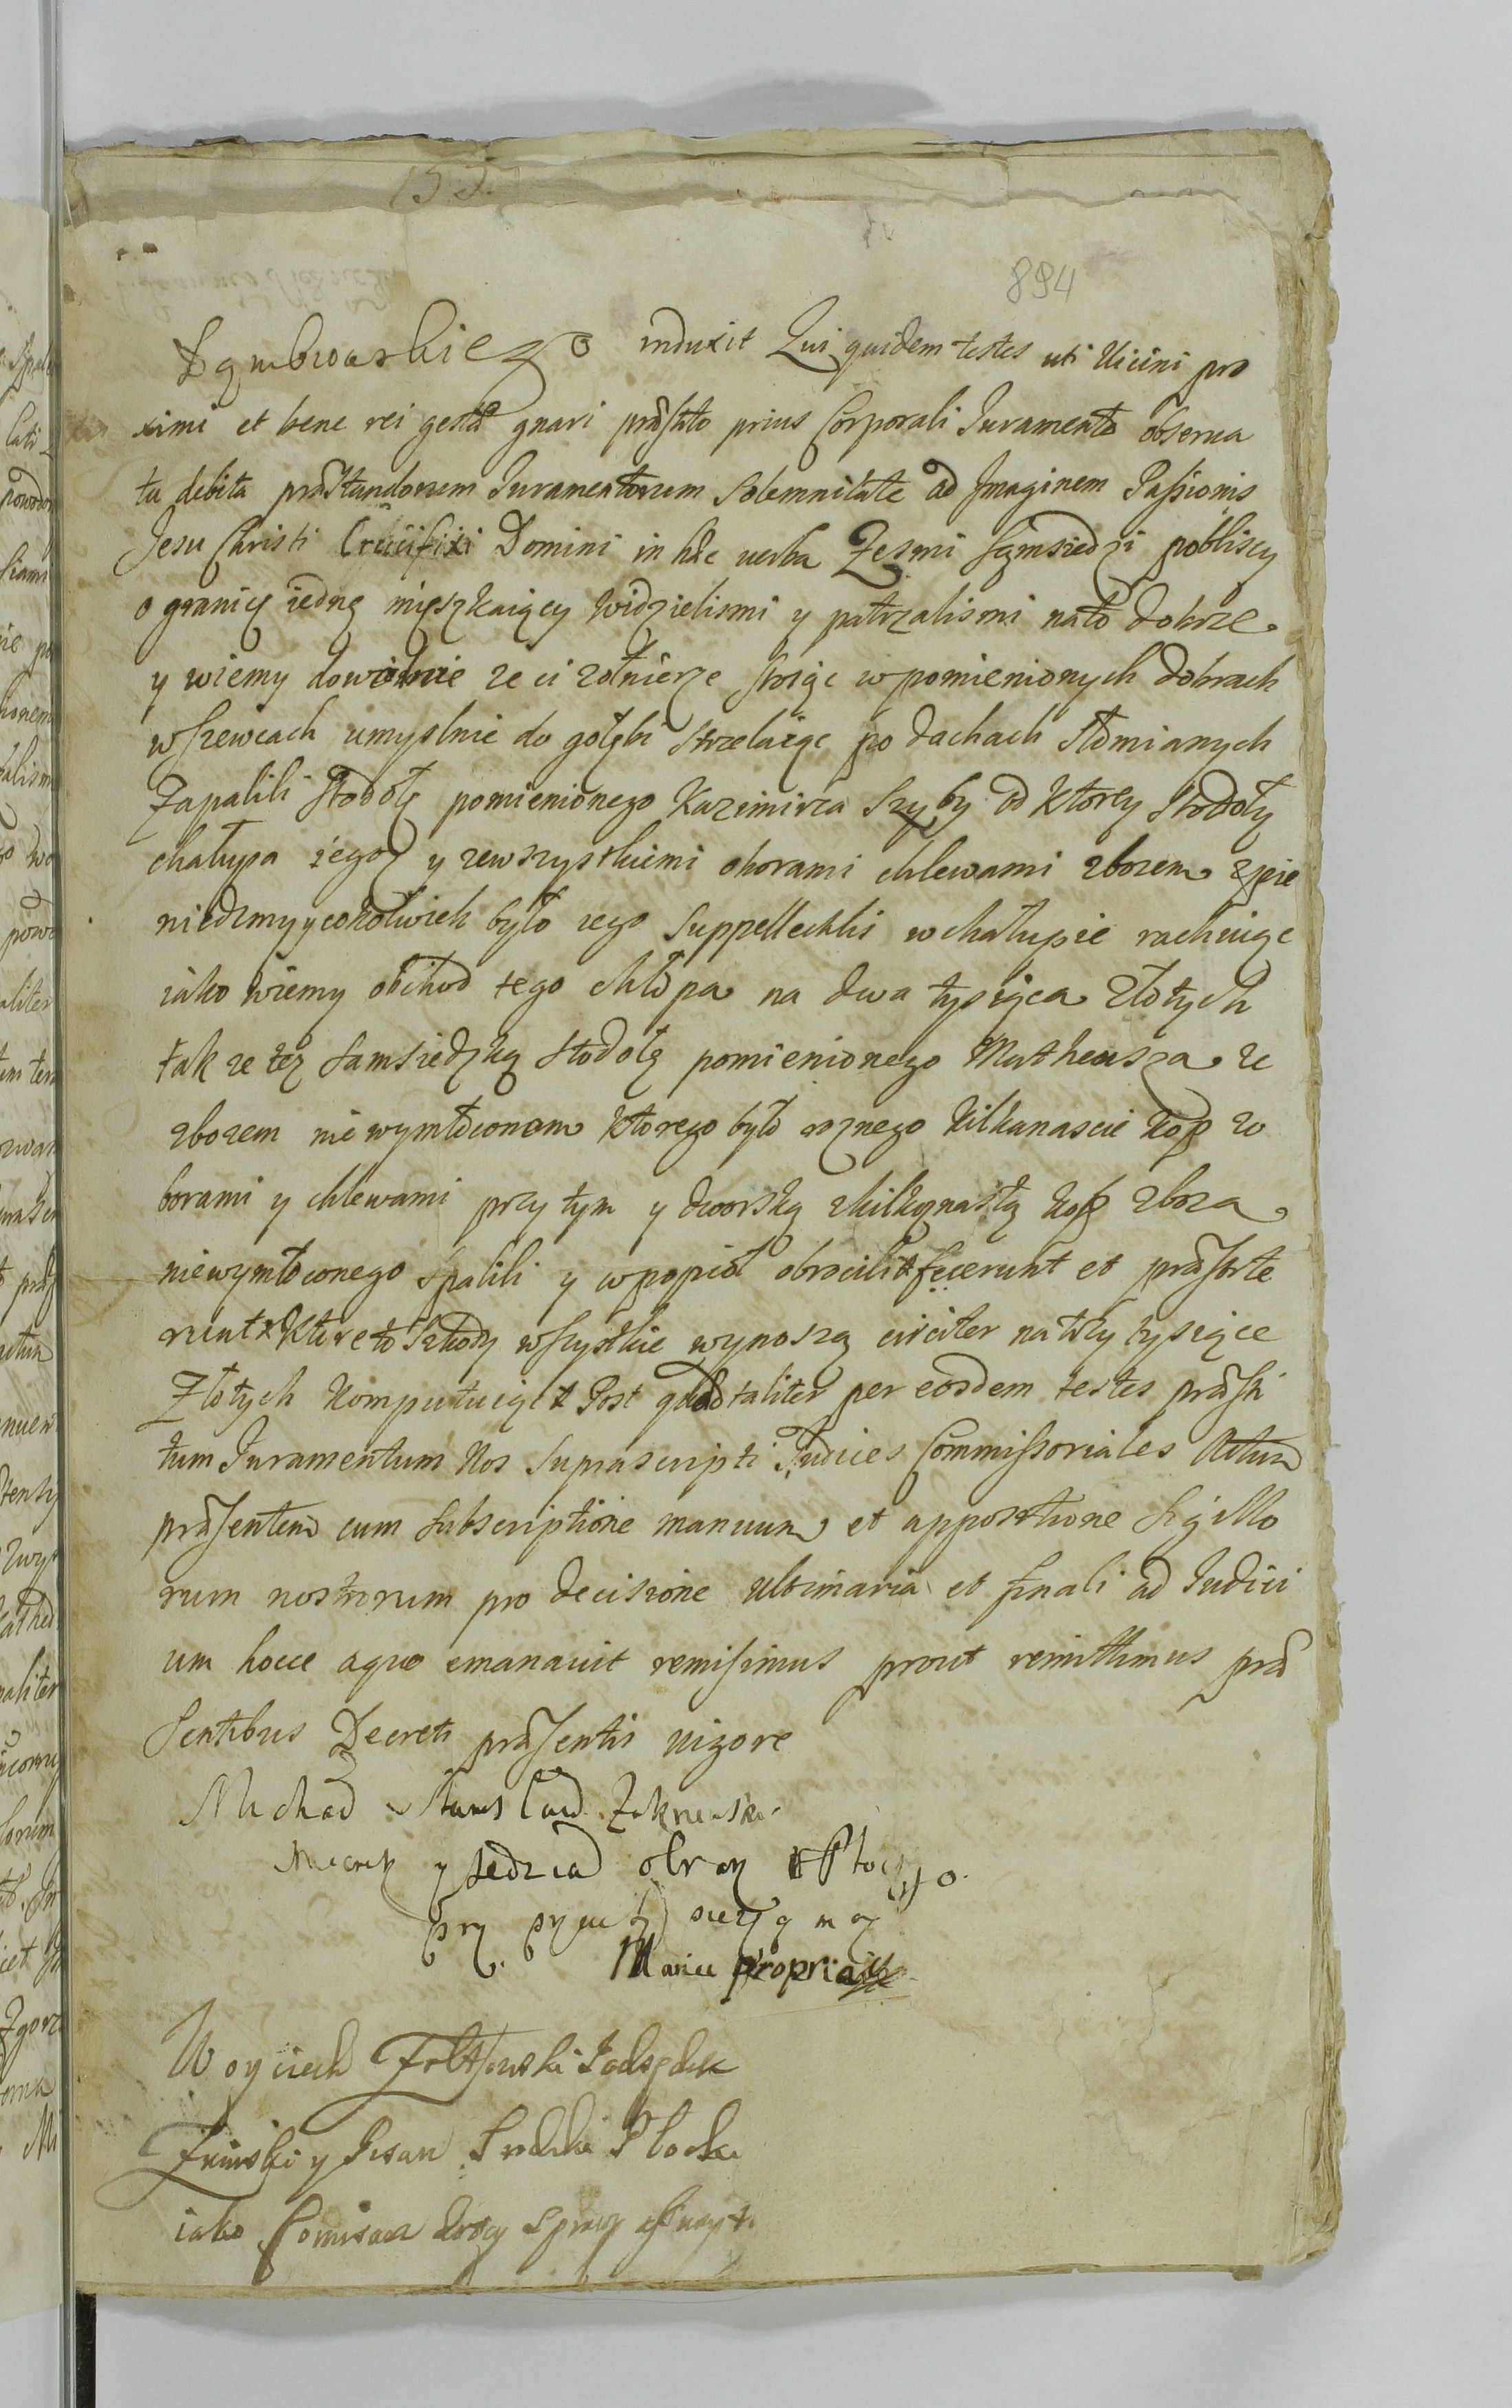 894
Dąmbrowskiego induxit Qui quidem testes uti Vicini pro
ximi et bene rei gestæ gnari præstito prius Corporali Juramento obserua
ta debita præstandorum Juramentorum Solemnitate ad Imaginem Passionis
Jesu Christi Crucifixi Domini in hæc uerba Zesmi sąmsiedzi pobliscy
o granicę iedną mięszkaiący widzielismi y patrzalismi nato dobrze
y wiemy dowodnie ze ci zołnierze stoiąc wpomienionych dobrach
wszewcach umyslnie do gołębi strzelaiąc po dachach słomianych
Zapalili stodołę pomienionego Kazimirza Szyby od ktorey stodoły
chałupa iego y zewszystkiemi oborami chlewami zbozem zpie
niędzmy y cokolwiek było iego Suppellectilis wchałupie rachuiąc
iako wiemy obchod tego chłopa na dwa tysiąca złotych
tak ze tez samsiedzką stodołę pomienionego Matheusza ze
zbozem nie wymłoconem ktorego było roznego kilkanascie kop zo
borami y chlewami przy tym y dworską zkilkąnastą kop zboza
niewymłoconego spalili y wpopioł obrocili fecerunt et præstite
runt ktore to szkody wszystkie wynoszą circiter na trzy tysiące
Złotych komputuiąc Post quod taliter per eosdem testes præsti
tum Juramentum Nos Suprascripti Judices Commissoriales Actum
præsentem cum subscriptione manuum et appositione Sigillo
rum nostrorum pro decisione ultimaria et finali ad Judici
um hocce a quo emanauit remisimus prout remittimus præ
sentibus Decreti præsentis uigore
Michał Stanisław Zakrzewski
y sedzia
Manu propria
Woyciech
y Pisarz Płocki
iako Comisarz